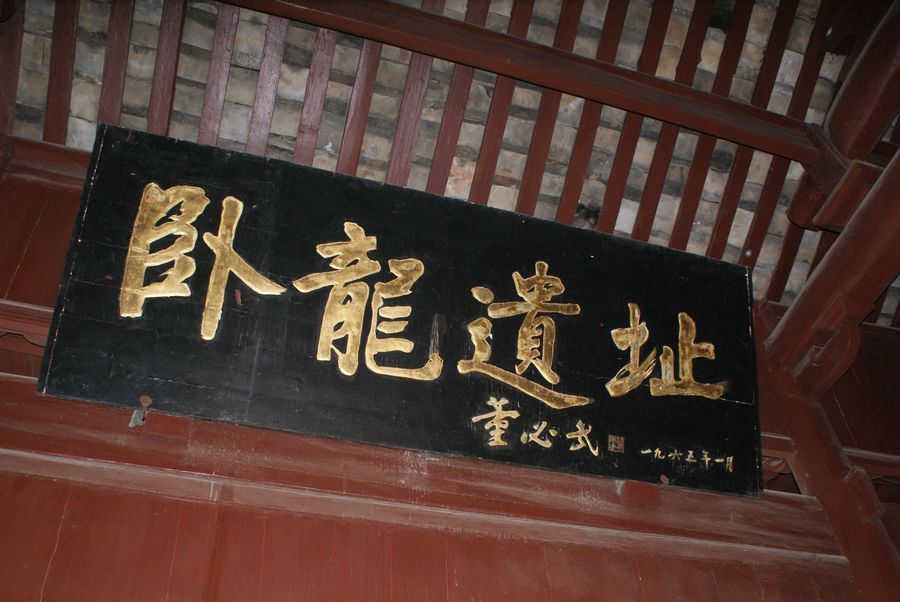 卧龍遺址
董必武
一九六五年一月